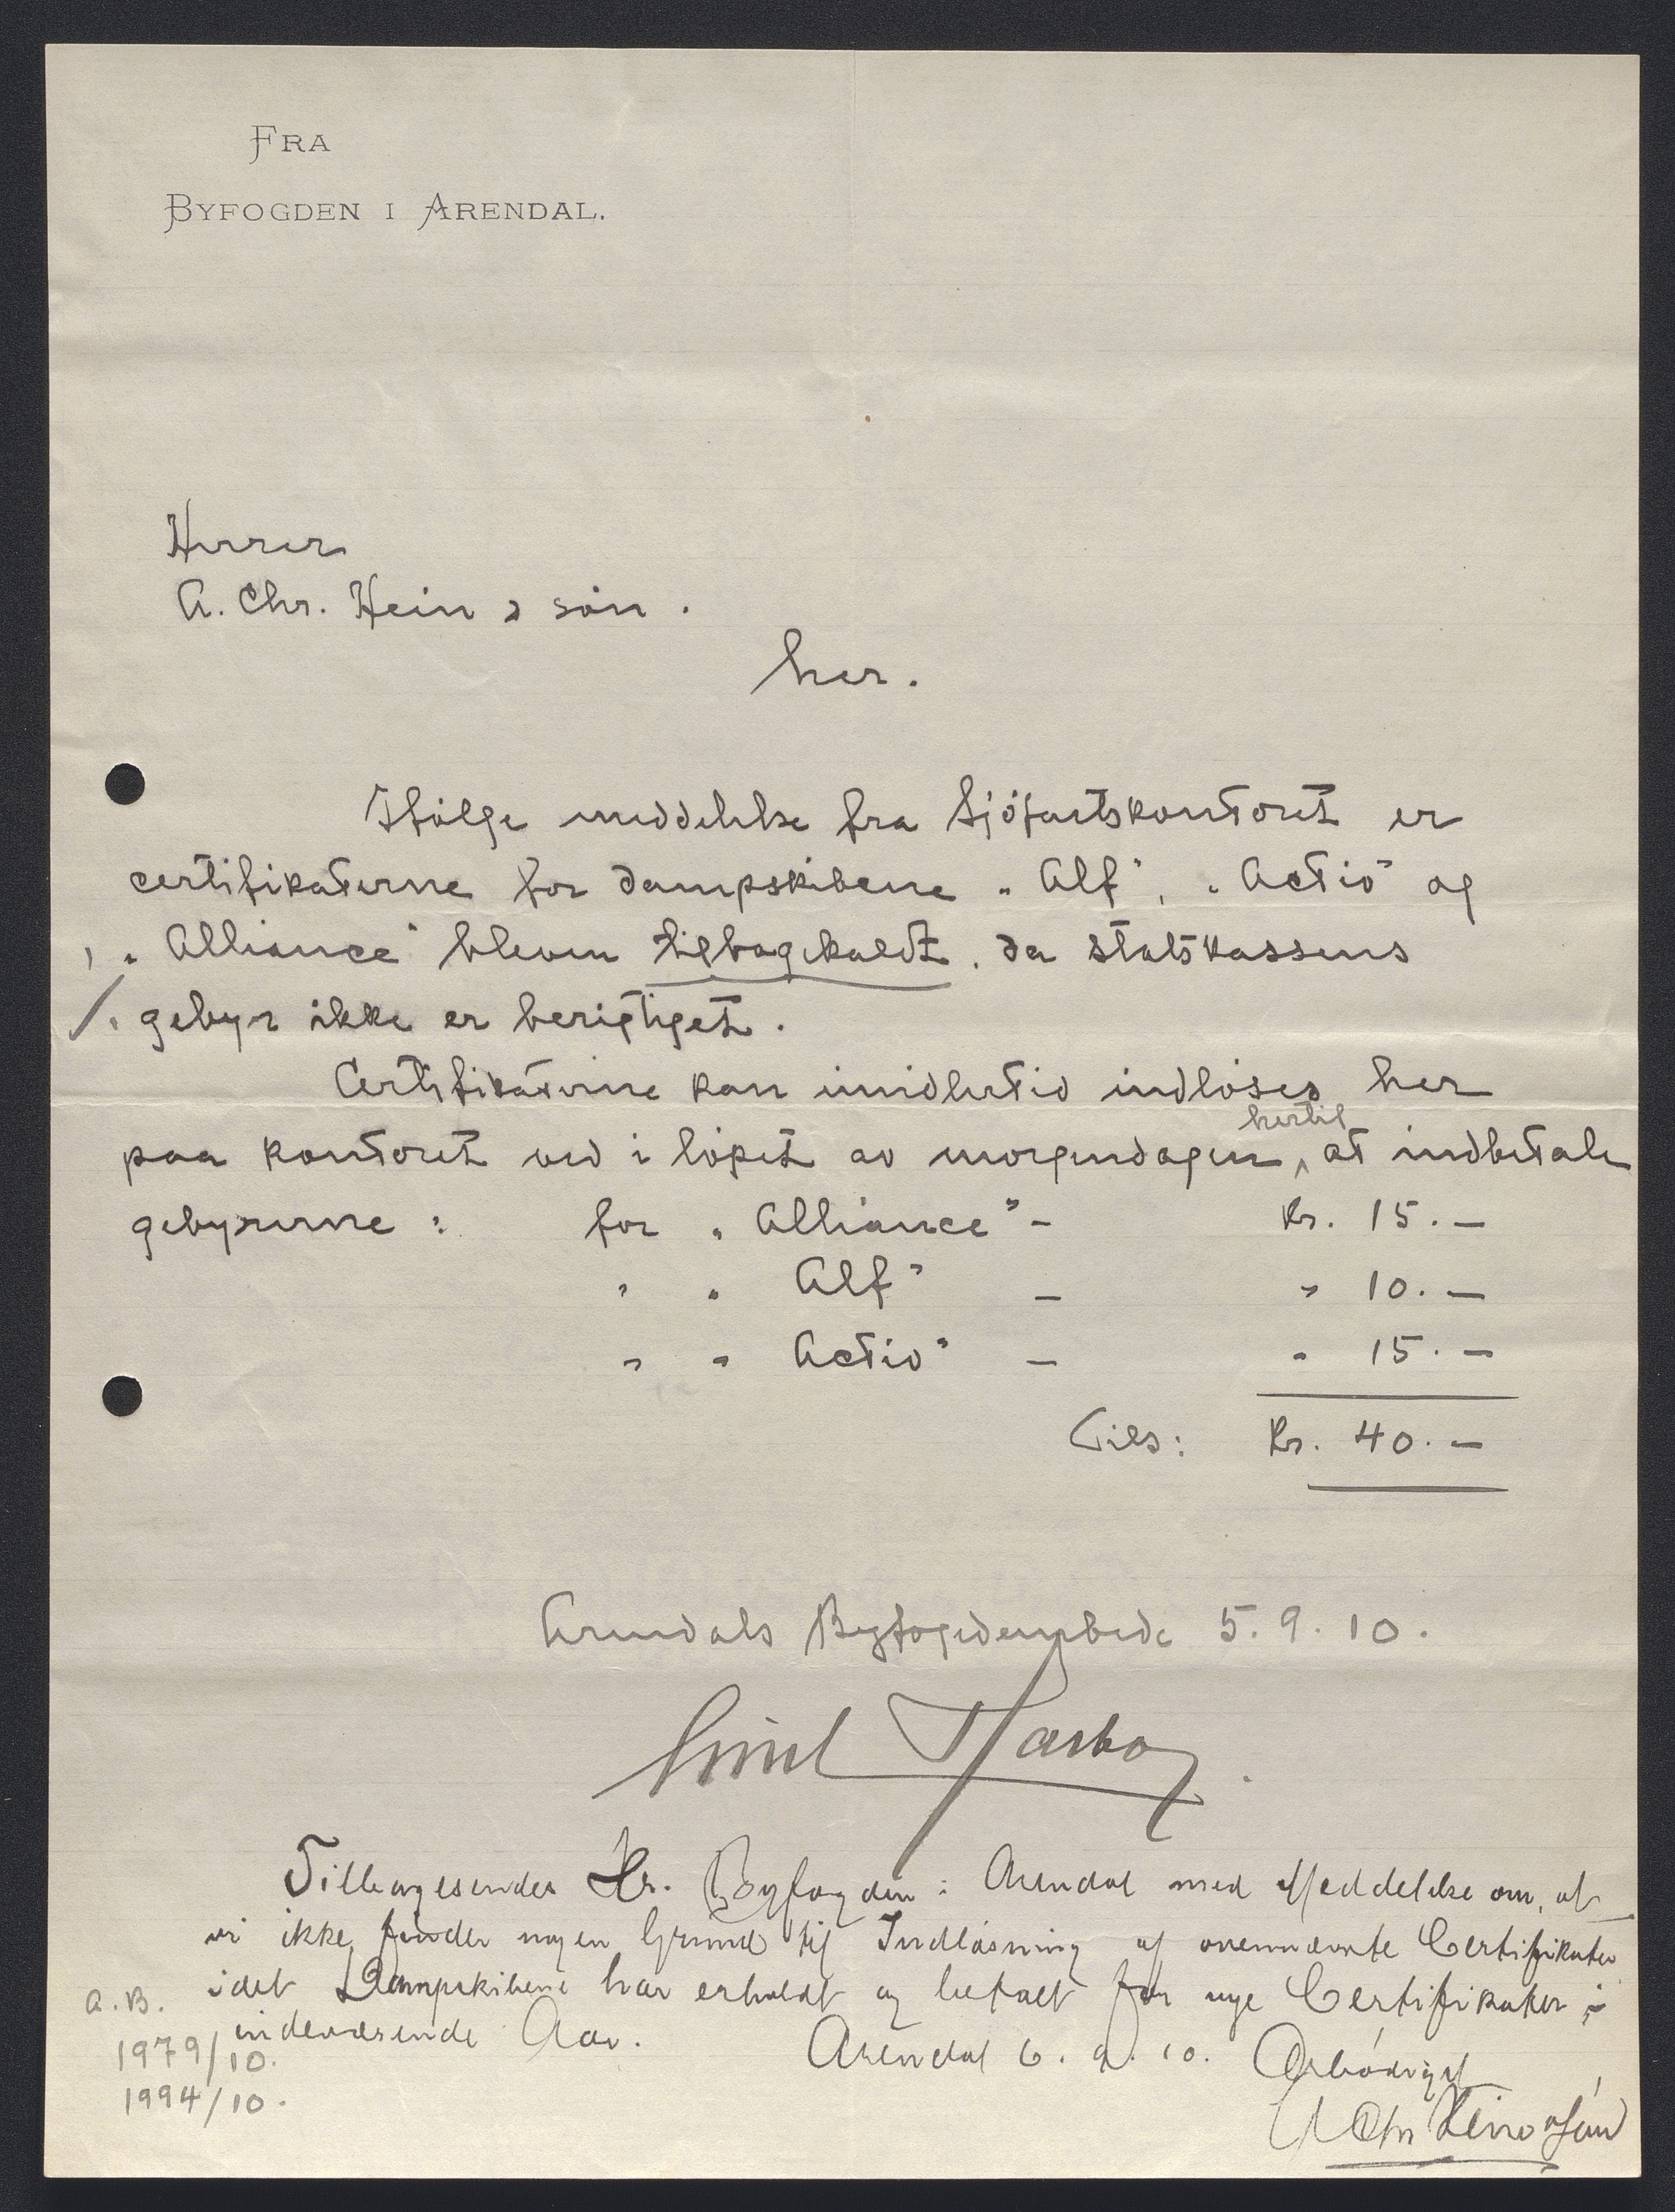 FRA
BYFOGDEN I ARENDAL.
Herrer
A. Chr. Hein & søn.
her.
Ifølge meddelelse fra Sjøfartskontoret er
certifikaterne for dampskibene „Alf", „Actio" og
„Alliance" bleven tilbagekaldt, da statskassens
gebyr ikke er berigtiget.
Certifikaterne kan imidlertid indløses her
paa kontoret ved i løpet av morgendagen hertil at indbetale
gebyrerne: for „Alliance" - Kr. 15.-
" „Alf" - " 10.-
" „Actio" - " 15.-
Tils: Kr. 40.-
Arendals Byfogedembede 5.9.10.
Tilbagesendes Hr. Byfogden i Arendal med Meddelelse om, at
vi ikke finder nogen Grund til Indløsning af ovennævnte Certifikater
idet Dampskibene har erholdt og betalt for nye Certifikater i
indeværende Aar. Arendal 6.9.10. Ærbødigst
A Chr Hein & Søn
a.B.
1979/10.
1994/10.